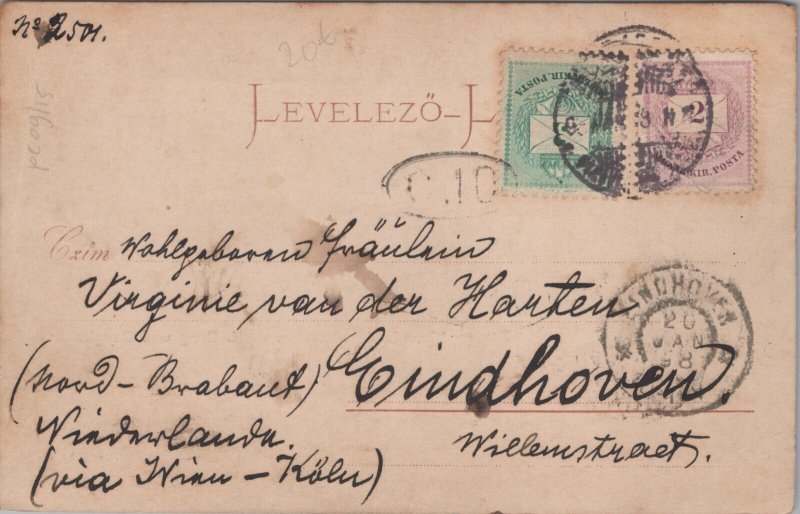 No 2501.
20
pc09/15
LEVELEZŐ-L
KIR. POSTA
2
KIR. POSTA
C.10
Czim Wohlgeboren Fräulein
Virginie van der Harten
(Nord-Brabant) Eindhoven.
Niederlande. Willemstraet.
(via Wien - Köln)
EINDHOVEN
20
JAN
98